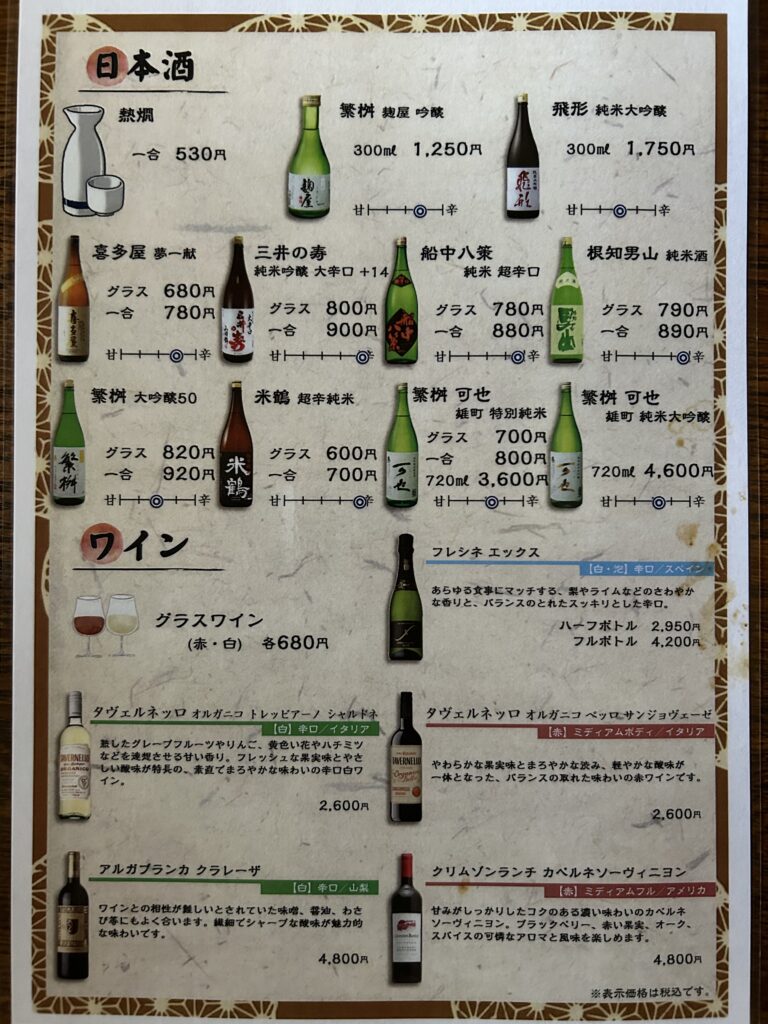 日本酒
熱燗
一合 530円
繁桝 麹屋 吟醸
300㎖ 1,250円
甘 辛
飛形 純米大吟醸
300㎖ 1,750円
甘 辛
喜多屋 夢一献
グラス 680円
一合 780円
甘 辛
三井の寿
純米吟醸 大辛口 +14
グラス 800円
一合 900円
甘 辛
船中八策
純米 超辛口
グラス 780円
一合 880円
甘 辛
根知男山 純米酒
グラス 790円
一合 890円
甘 辛
繁桝 大吟醸50
グラス 820円
一合 920円
甘 辛
米鶴 超辛純米
グラス 600円
一合 700円
甘 辛
繁桝 可也
雄町 特別純米
グラス 700円
一合 800円
720㎖ 3,600円
甘 辛
繁桝 可也
雄町 純米大吟醸
720㎖ 4,600円
甘 辛
麹屋
飛形
喜多屋
三井の寿
船中八策
繁桝
米鶴
可也
可也
ワイン
グラスワイン
(赤・白) 各680円
フレシネ エックス
【白・泡】辛口／スペイン
あらゆる食事にマッチする、梨やライムなどのさわやか
な香りと、バランスのとれたスッキリとした辛口。
ハーフボトル 2,950円
フルボトル 4,200円
タヴェルネッロ オルガニコ トレッビアーノ シャルドネ
【白】辛口／イタリア
熟したグレープフルーツやりんご、黄色い花やハチミツ
などを連想させる甘い香り。フレッシュな果実味とやさ
しい酸味が特長の、素直でまろやかな味わいの辛口白ワ
イン。
2,600円
TAVERNELLO
ORGANICO
タヴェルネッロ オルガニコ ベッロ サンジョヴェーゼ
【赤】ミディアムボディ／イタリア
やわらかな果実味とまろやかな渋み、軽やかな酸味が
一体となった、バランスの取れた味わいの赤ワインです。
2,600円
TAVERNELLO
アルガブランカ クラレーザ
【白】辛口／山梨
ワインとの相性が難しいとされていた味噌、醤油、わさ
び等にもよく合います。繊細でシャープな酸味が魅力的
な味わいです。
4,800円
クリムゾンランチ カベルネソーヴィニヨン
【赤】ミディアムフル／アメリカ
甘みがしっかりしたコクのある濃い味わいのカベルネ
ソーヴィニヨン。ブラックベリー、赤い果実、オーク、
スパイスの可憐なアロマと風味を楽しめます。
4,800円
※表示価格は税込です。